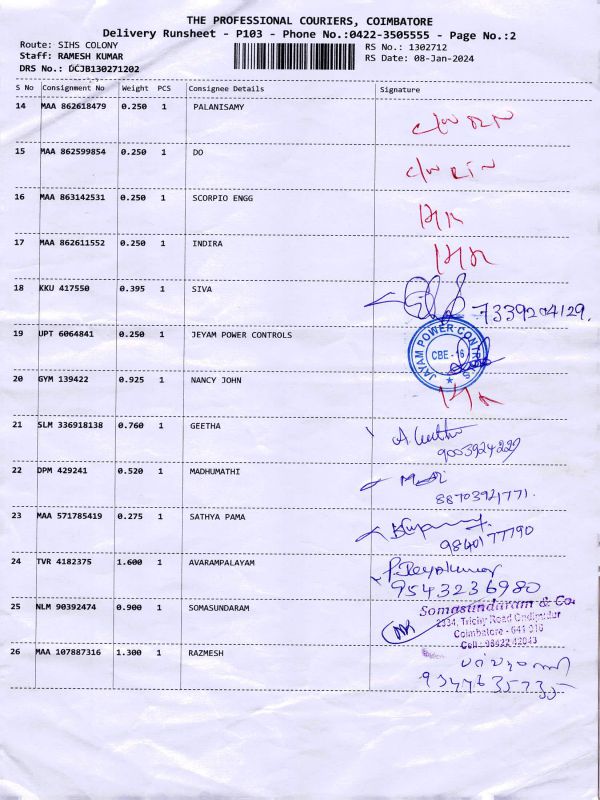 THE PROFESSIONAL COURIERS, COIMBATORE
Delivery Runsheet - P103 - Phone No.:0422-3505555 - Page No.:2
Route: SIHS COLONY RS No.: 1302712
Staff: RAMESH KUMAR RS Date: 08-Jan-2024
DRS No.: DCJB130271202
S No Consignment No Weight PCS Consignee Details Signature
14 MAA 862618479 0.250 1 PALANISAMY
15 MAA 862599854 0.250 1 DO
16 MAA 863142531 0.250 1 SCORPIO ENGG
17 MAA 862611552 0.250 1 INDIRA
18 KKU 417550 0.395 1 SIVA 7339204129.
19 UPT 6064841 0.250 1 JEYAM POWER CONTROLS
JAYAM POWER CONTROLS
CBE - 16
20 GYM 139422 0.925 1 NANCY JOHN
21 SLM 336918138 0.760 1 GEETHA
22 DPM 429241 0.520 1 MADHUMATHI
88703921771.
23 MAA 571785419 0.275 1 SATHYA PAMA
9840177790
24 TVR 4182375 1.600 1 AVARAMPALAYAM
9543236980
25 NLM 90392474 0.900 1 SOMASUNDARAM
Somasundaram & Co.
2334, Trichy Road Ondipudur
Coimbatore - 641 016
Cell : 98422 42043
26 MAA 107887316 1.300 1 RAZMESH